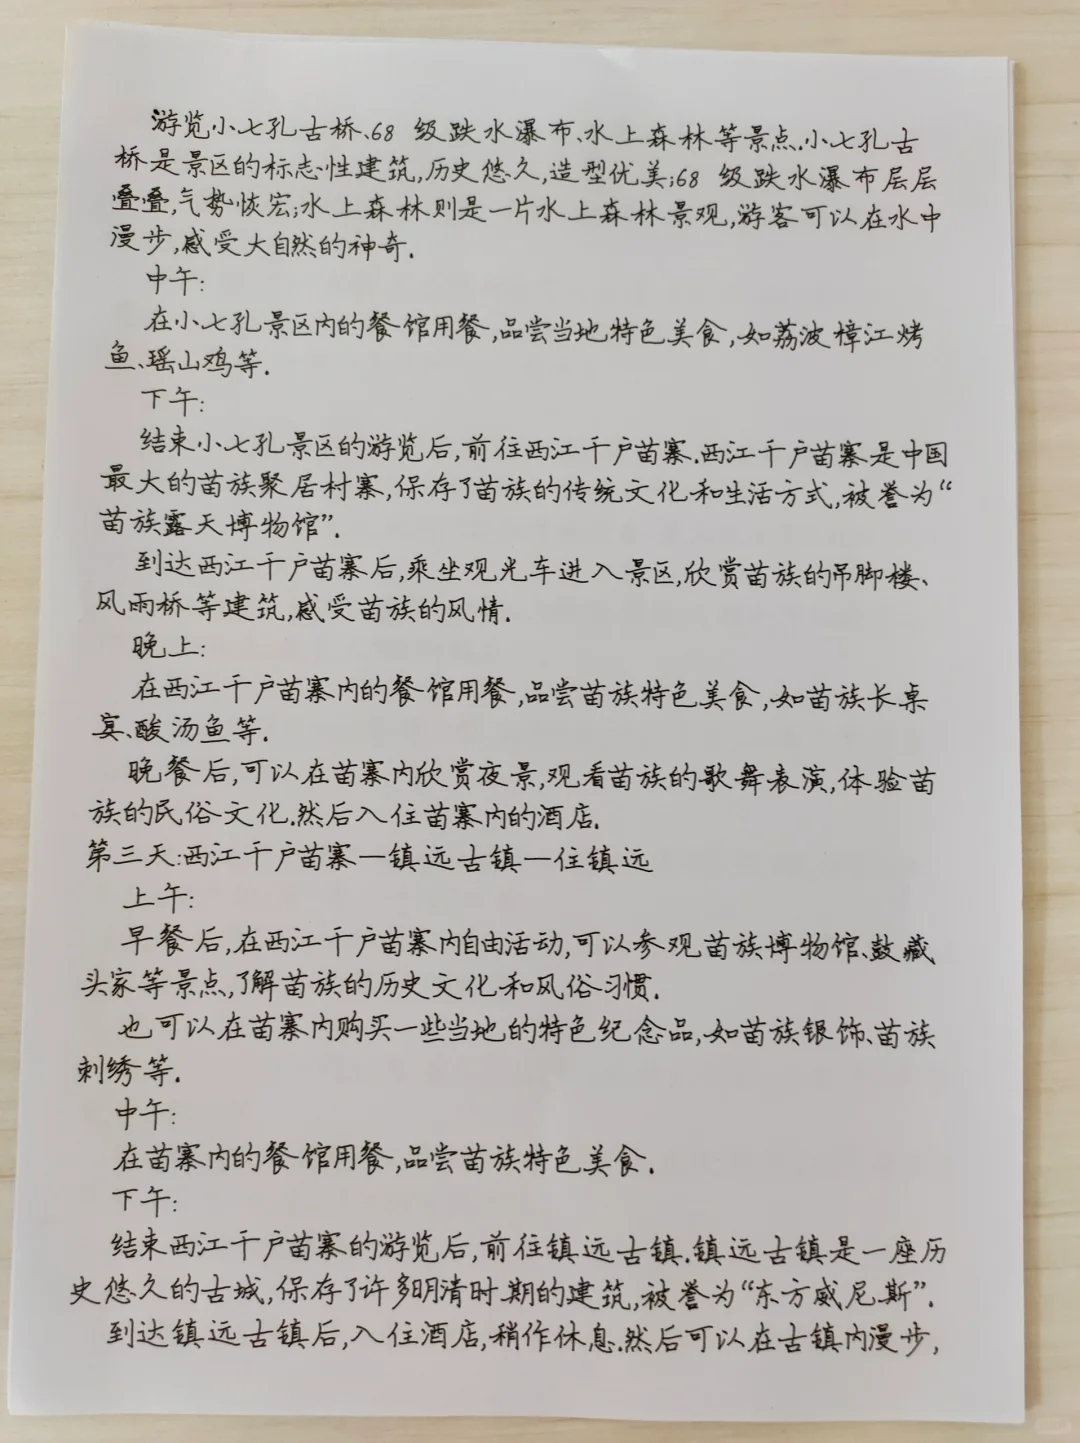 游览小七孔古桥、68 级跌水瀑布、水上森林等景点.小七孔古
桥是景区的标志性建筑,历史悠久,造型优美;68 级跌水瀑布层层
叠叠,气势恢宏;水上森林则是一片水上森林景观,游客可以在水中
漫步,感受大自然的神奇.
中午:
在小七孔景区内的餐馆用餐,品尝当地特色美食,如荔波樟江烤
鱼、瑶山鸡等.
下午:
结束小七孔景区的游览后,前往西江千户苗寨.西江千户苗寨是中国
最大的苗族聚居村寨,保存了苗族的传统文化和生活方式,被誉为“
苗族露天博物馆”.
到达西江千户苗寨后,乘坐观光车进入景区,欣赏苗族的吊脚楼、
风雨桥等建筑,感受苗族的风情.
晚上:
在西江千户苗寨内的餐馆用餐,品尝苗族特色美食,如苗族长桌
宴、酸汤鱼等.
晚餐后,可以在苗寨内欣赏夜景,观看苗族的歌舞表演,体验苗
族的民俗文化.然后入住苗寨内的酒店.
第三天:西江千户苗寨—镇远古镇—住镇远
上午:
早餐后,在西江千户苗寨内自由活动,可以参观苗族博物馆、鼓藏
头家等景点,了解苗族的历史文化和风俗习惯.
也可以在苗寨内购买一些当地的特色纪念品,如苗族银饰、苗族
刺绣等.
中午:
在苗寨内的餐馆用餐,品尝苗族特色美食.
下午:
结束西江千户苗寨的游览后,前往镇远古镇.镇远古镇是一座历
史悠久的古城,保存了许多明清时期的建筑,被誉为“东方威尼斯”.
到达镇远古镇后,入住酒店,稍作休息.然后可以在古镇内漫步,